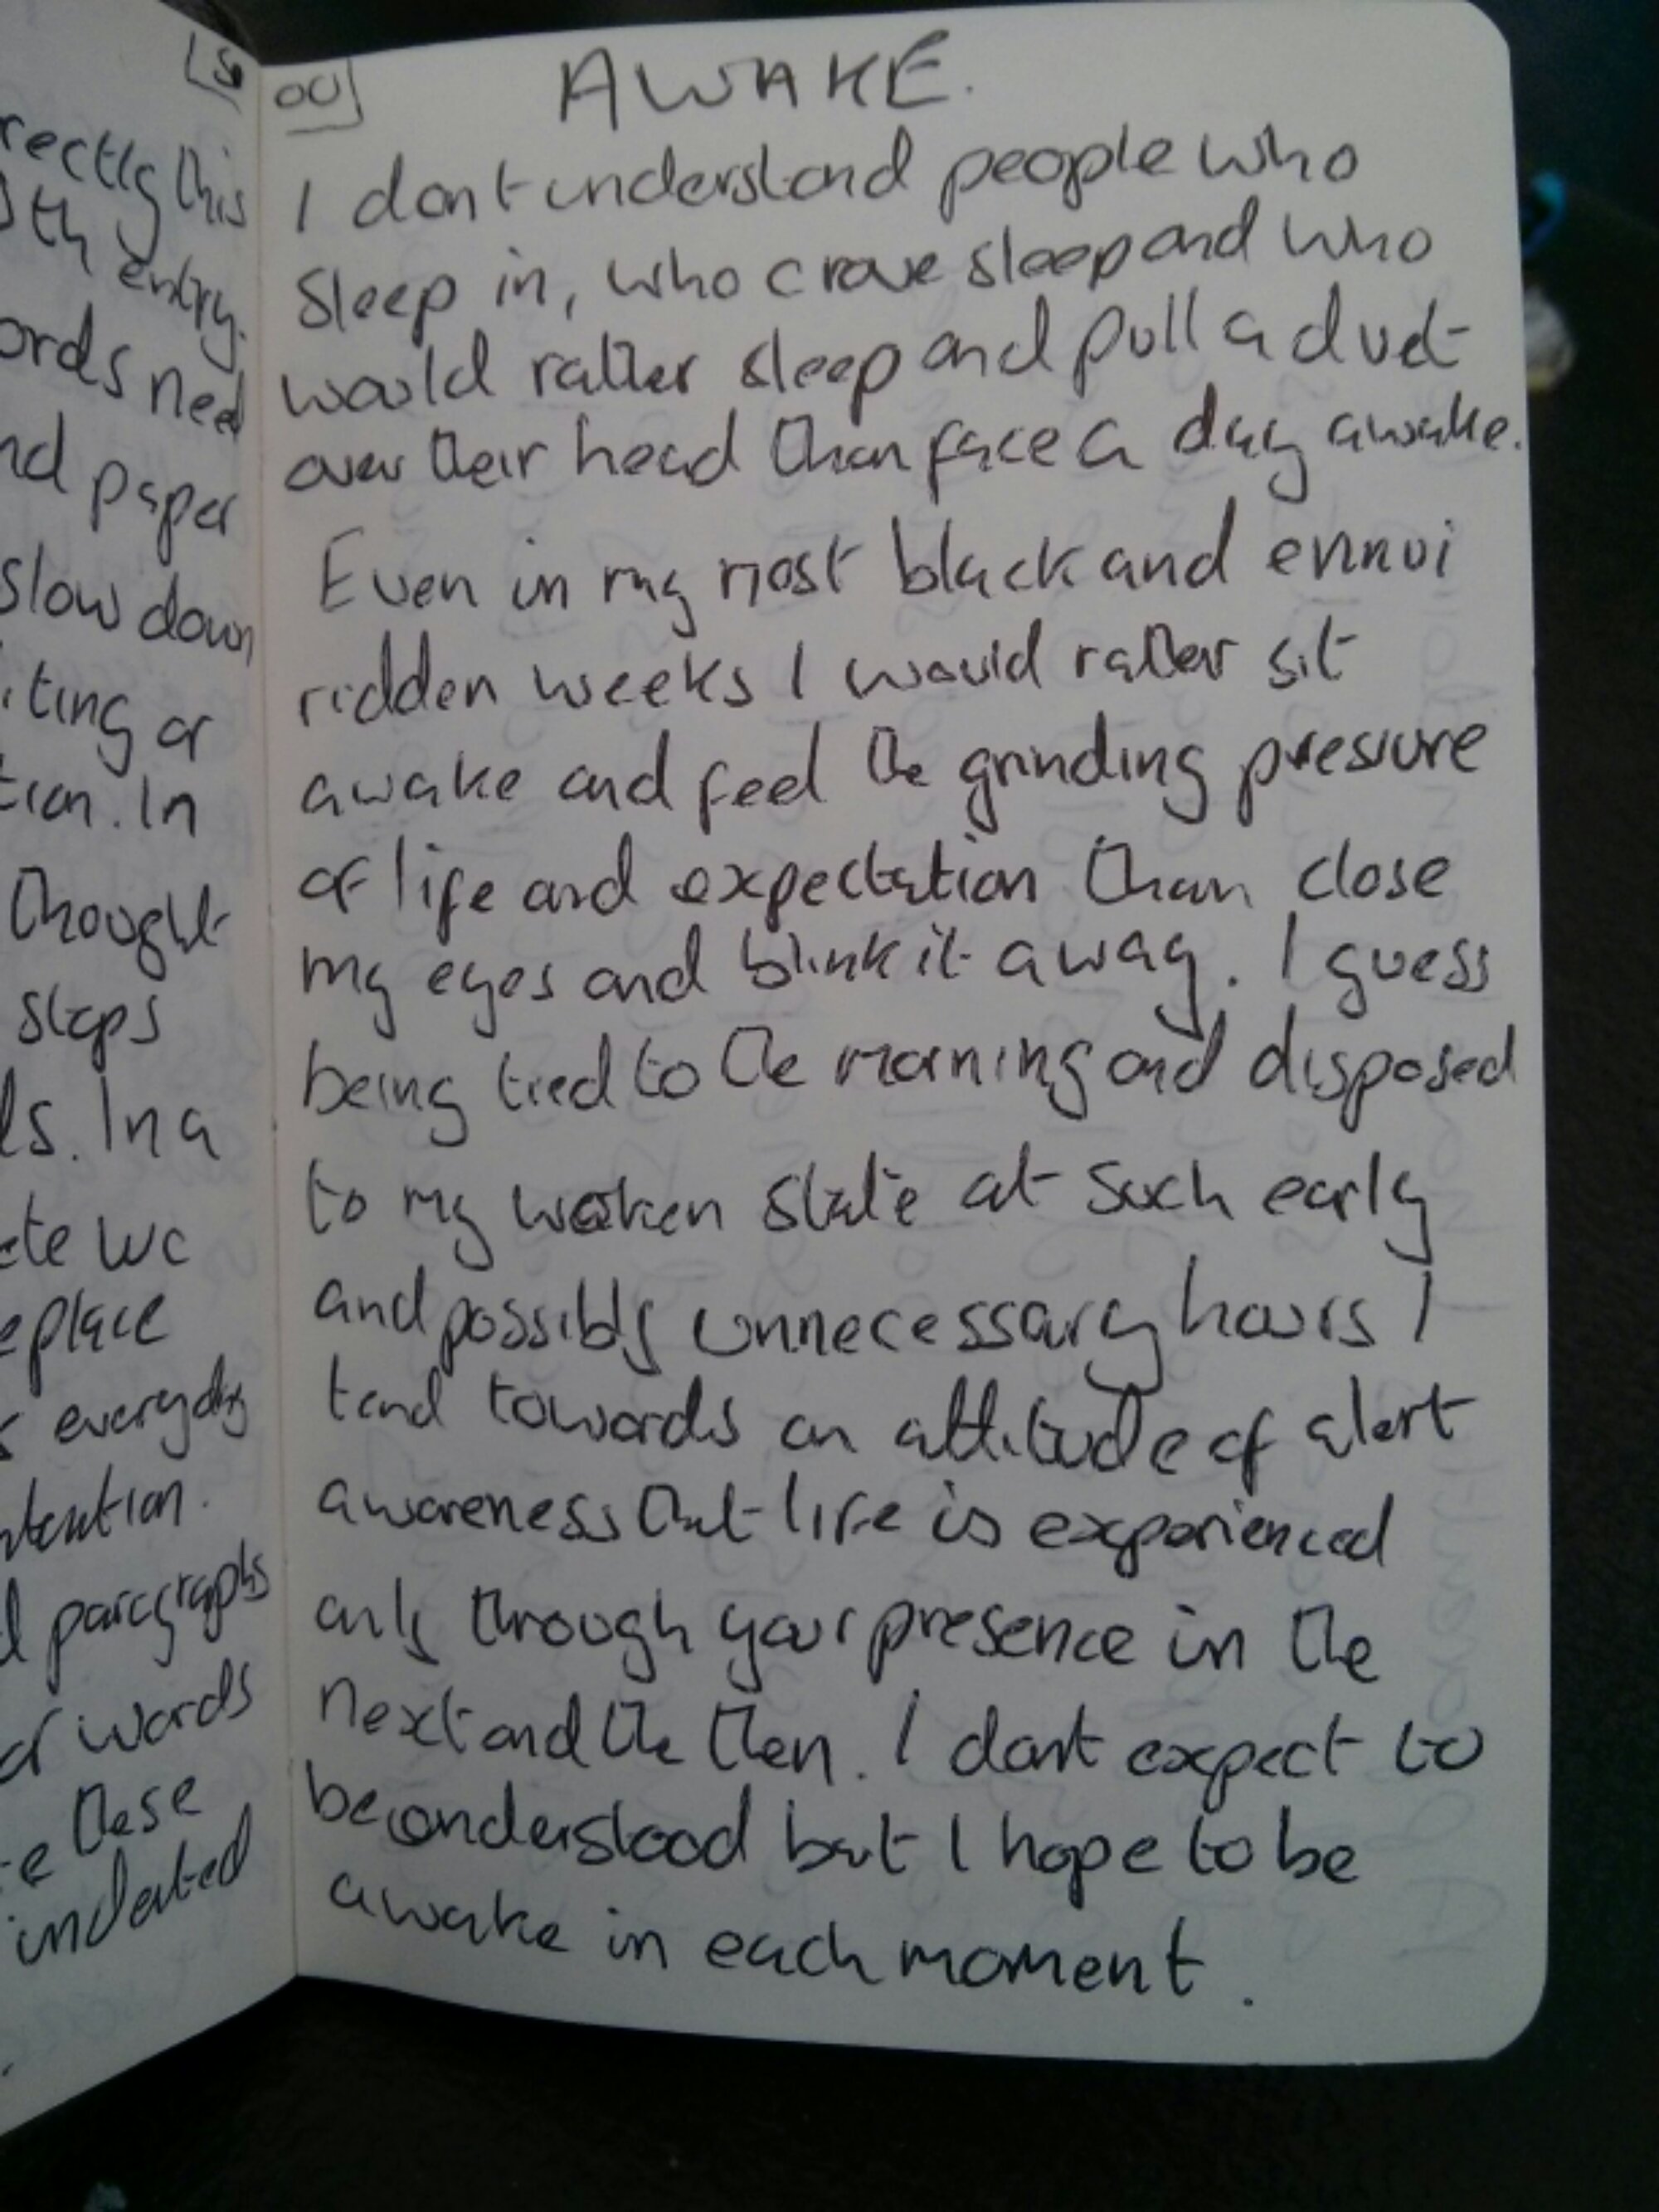 rectly this
th entry.
ords need
nd paper
slow down
iting or
tion. In
thought
steps
ls. In a
ete we
eplace
everyday
ntention.
d paragraphs
or words
e these
indented
00
AWAKE.
I dont understand people who
sleep in, who crave sleep and who
would rather sleep and pull a duvet
over their head than face a day awake.
Even in my most black and ennui
ridden weeks I would rather sit
awake and feel the grinding pressure
of life and expectation than close
my eyes and blink it away. I guess
being tied to the morning and disposed
to my woken state at such early
and possibly unnecessary hours I
tend towards an attitude of alert
awareness that life is experienced
only through your presence in the
next and the then. I dont expect to
be understood but I hope to be
awake in each moment.